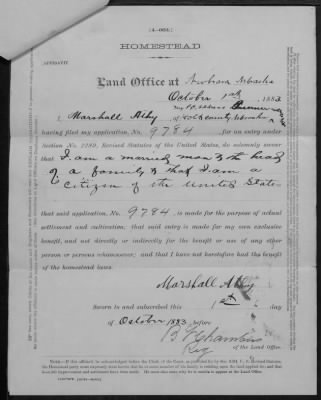 (4—063.)
HOMESTEAD
AFFIDAVIT.
Land Office at Niobrara Nebraska
October 1st, 1883
I, Marshall Alby, of Holt County Nebraska
having filed my application, No. 9784, for an entry under
Section No. 2289, Revised Statutes of the United States, do solemnly swear
that I am a married man & the head
of a family & that I am a
citizen of the United States
that said application, No. 9784, is made for the purpose of actual
settlement and cultivation; that said entry is made for my own exclusive
benefit, and not directly or indirectly for the benefit or use of any other
person or persons whomsoever; and that I have not heretofore had the benefit
of the homestead laws.
Marshall Alby
Sworn to and subscribed this 1st day
of October 1883, before
B F Chambers
Reg
of the Land Office.